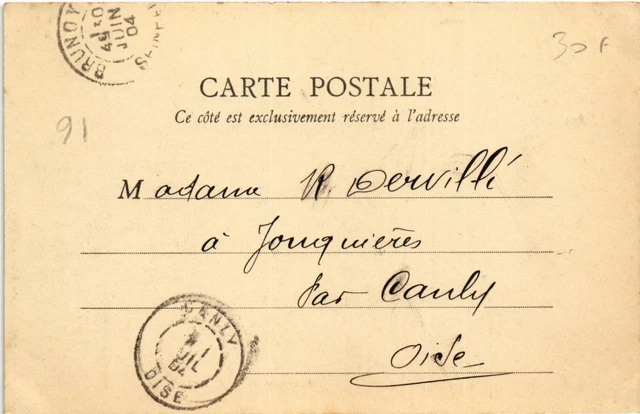 BRUNOY
30
JUIN
04
30 F
CARTE POSTALE
Ce côté est exclusivement réservé à l'adresse
91
Madame R. Dervillé
à Jonquières
par Canly
Oise
CANLY
1
JUIL
04
OISE